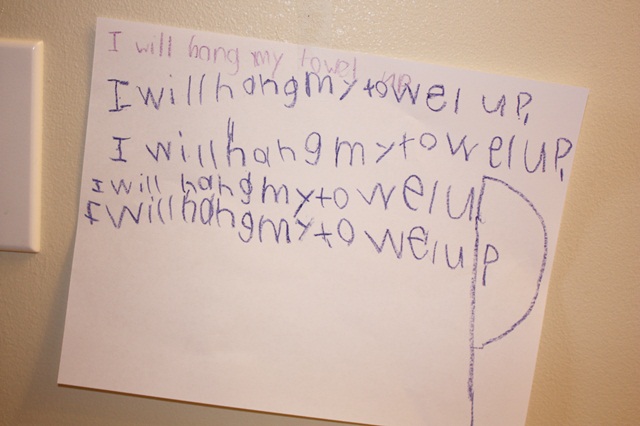 I will hang my towel up
I will hang my towel up,
I will hang my towel up,
I will hang my towel up
I will hang my towel up